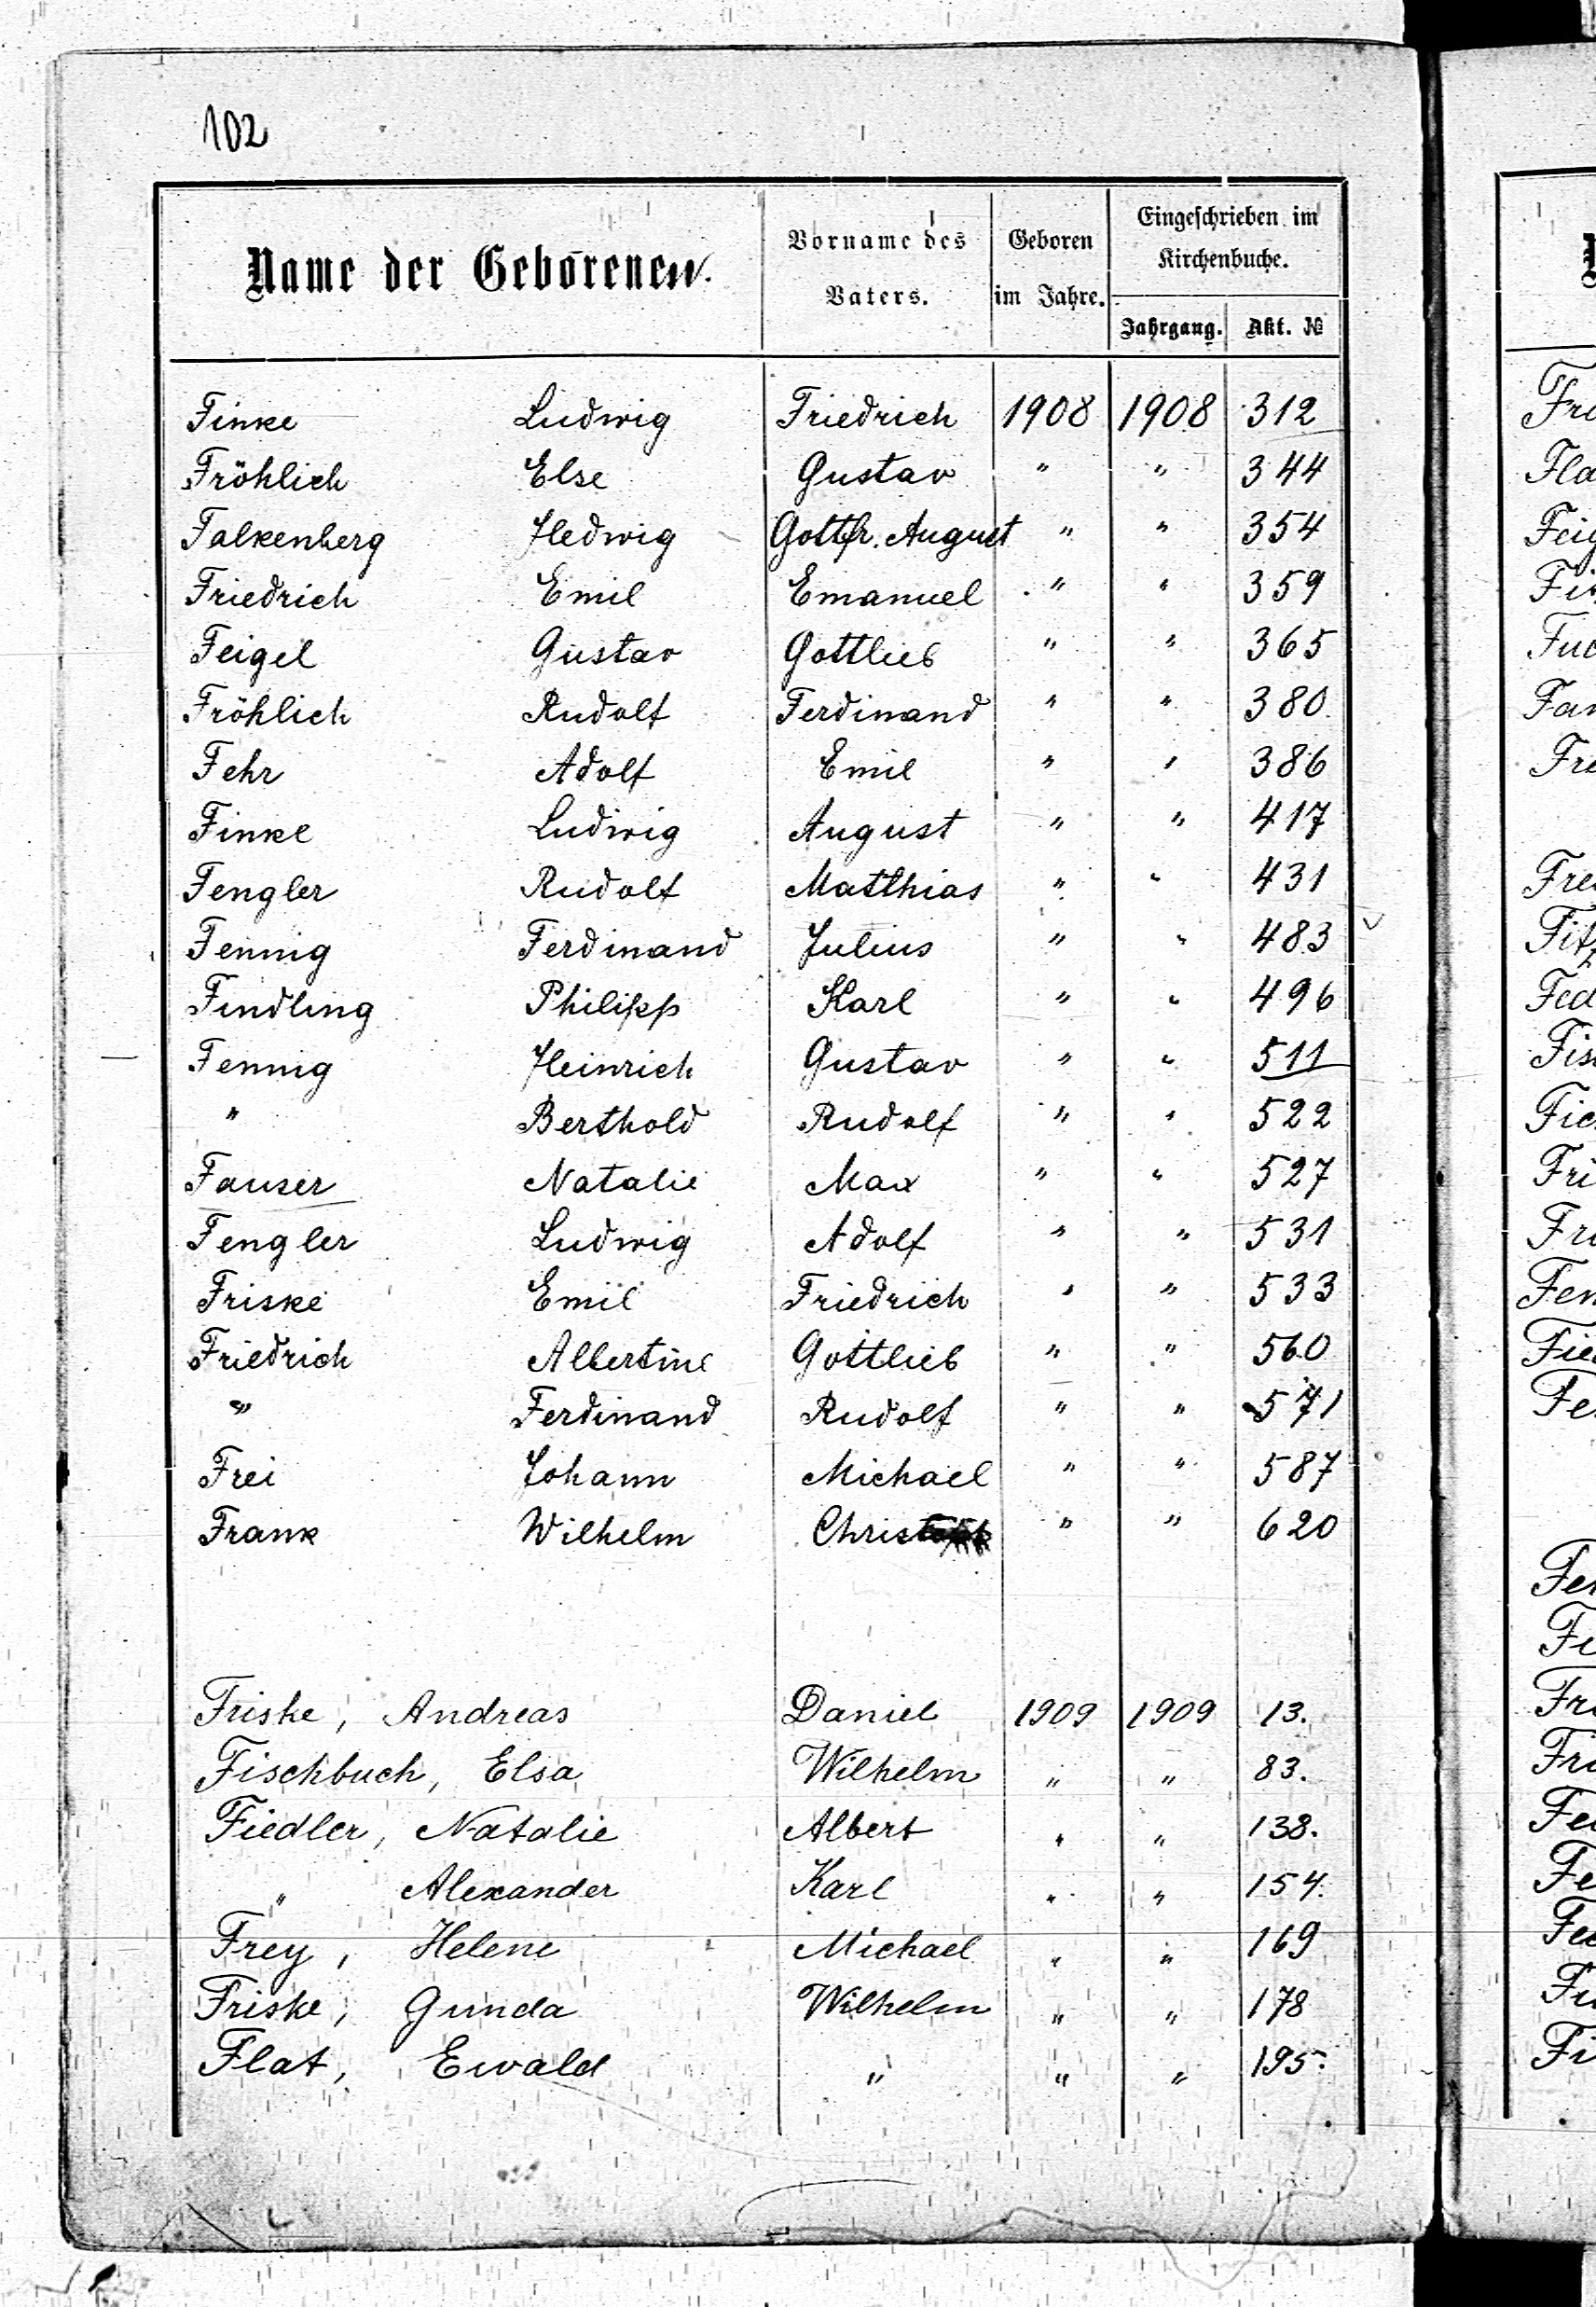 102
Name der Geborenen. Vorname des Vaters. Geboren im Jahre. Eingeschrieben im Kirchenbuche.
Jahrgang. Akt. №
Finke Ludwig Friedrich 1908 1908 312
Fröhlich Else Gustav " " 344
Falkenberg Hedwig Gottfr. August " " 354
Friedrich Emil Emanuel " " 359
Feigel Gustav Gottlieb " " 365
Fröhlich Rudolf Ferdinand " " 380
Fehr Adolf Emil " " 386
Finke Ludwig August " " 417
Fengler Rudolf Matthias " " 431
Fennig Ferdinand Julius " " 483
Findling Philipp Karl " " 496
Fennig Heinrich Gustav " " 511
" Berthold Rudolf " " 522
Fauser Natalie Max " " 527
Fengler Ludwig Adolf " " 531
Friske Emil Friedrich " " 533
Friedrich Albertine Gottlieb " " 560
" Ferdinand Rudolf " " 571
Frei Johann Michael " " 587
Frank Wilhelm " " 620
Friske, Andreas Daniel 1909 1909 13.
Fischbuch, Elsa Wilhelm " " 83.
Fiedler, Natalie Albert " " 138.
" Alexander Karl " " 154.
Frey, Helene Michael " " 169
Friske, Gunda Wilhelm " " 178
Flat, Ewald " " " 195.